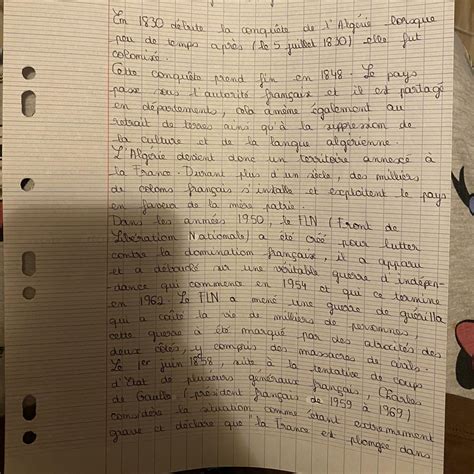 En 1830 débute la conquête de l'Algérie lorsque
peu de temps après (le 5 juillet 1830) elle fut
colonisé.
Cette conquête prend fin en 1848. Le pays
passe sous l'autorité français et il est partagé
en départements, cela amène également au
retrait de terres ains qu'à la suppression de
la culture et de la langue algérienne.
L'Algérie devient donc un territoire annexé à
la France. Durant plus d'un siècle, des milliers
de colons français s'installe et exploitent le pays
en faveur de la mère patrie.
Dans les années 1950, le FLN (Front de
Libération Nationale) a été créé pour lutter
contre la domination français, il a apparu
et a débouché sur une véritable guerre d'indépen-
dance qui commence en 1954 et qui ce termine
en 1962. Le FLN a mené une guerre de guérilla
qui a coûté la vie de milliers de personnes,
cette guerre à été marqué par des atrocités des
deux côtés, y compris des massacres de civils.
Le 1er juin 1958, suite à la tentative de coup
d'Etat de plusieurs généraux français, Charles
de Gaulle (président français de 1959 à 1969)
considère la situation comme étant extrêmement
grave et déclare que "la France est plongée dans